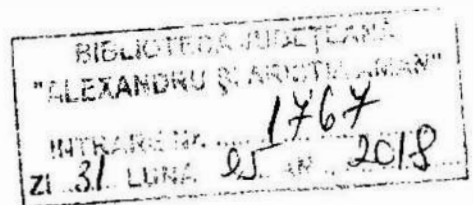 BIBLIOTECA JUDEŢEANĂ
"ALEXANDRU ŞI ARISTIA AMAN"
INTRARE Nr. ........ 1767
ZI 31 LUNA 05 AN 2018